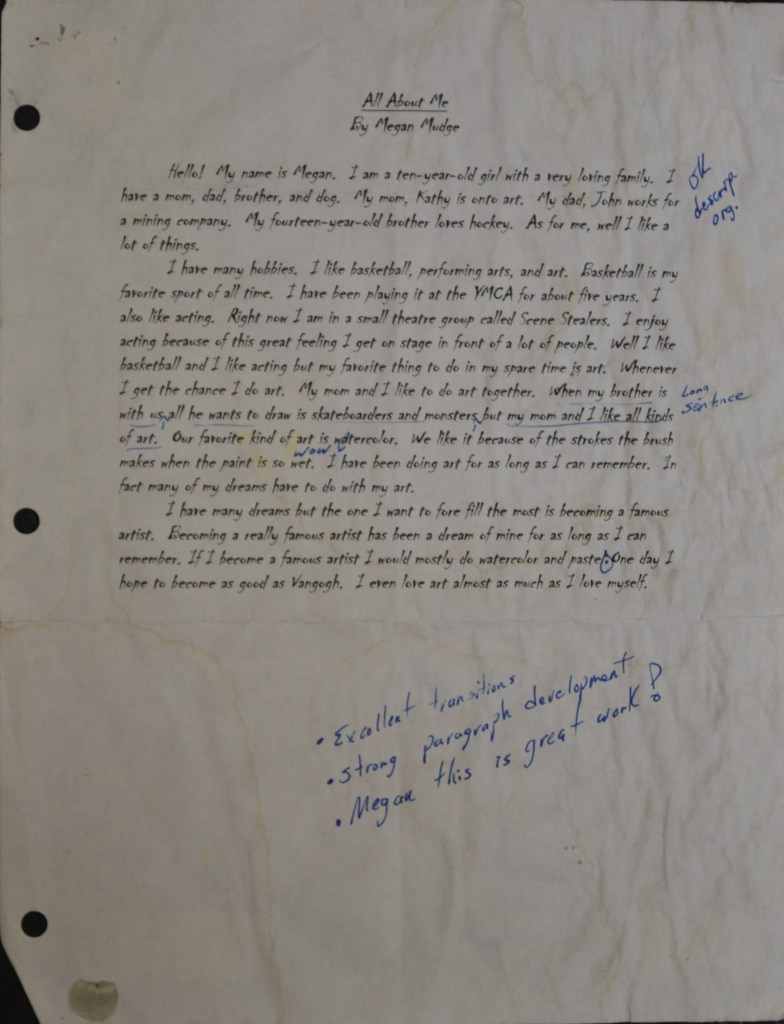 All About Me
By Megan Mudge
Hello! My name is Megan. I am a ten-year-old girl with a very loving family. I
have a mom, dad, brother, and dog. My mom, Kathy is onto art. My dad, John works for
a mining company. My fourteen-year-old brother loves hockey. As for me, well I like a
lot of things.
OK
descrip.
org.
I have many hobbies. I like basketball, performing arts, and art. Basketball is my
favorite sport of all time. I have been playing it at the YMCA for about five years. I
also like acting. Right now I am in a small theatre group called Scene Stealers. I enjoy
acting because of this great feeling I get on stage in front of a lot of people. Well I like
basketball and I like acting but my favorite thing to do in my spare time is art. Whenever
I get the chance I do art. My mom and I like to do art together. When my brother is
with us, all he wants to draw is skateboarders and monsters, but my mom and I like all kinds
of art. Our favorite kind of art is watercolor. We like it because of the strokes the brush
makes when the paint is so wet. I have been doing art for as long as I can remember. In
fact many of my dreams have to do with my art.
Long
sentence
wow
I have many dreams but the one I want to fore fill the most is becoming a famous
artist. Becoming a really famous artist has been a dream of mine for as long as I can
remember. If I become a famous artist I would mostly do watercolor and pastel. One day I
hope to become as good as Vangogh. I even love art almost as much as I love myself.
• Excellent transitions
• Strong paragraph development
• Megan this is great work!